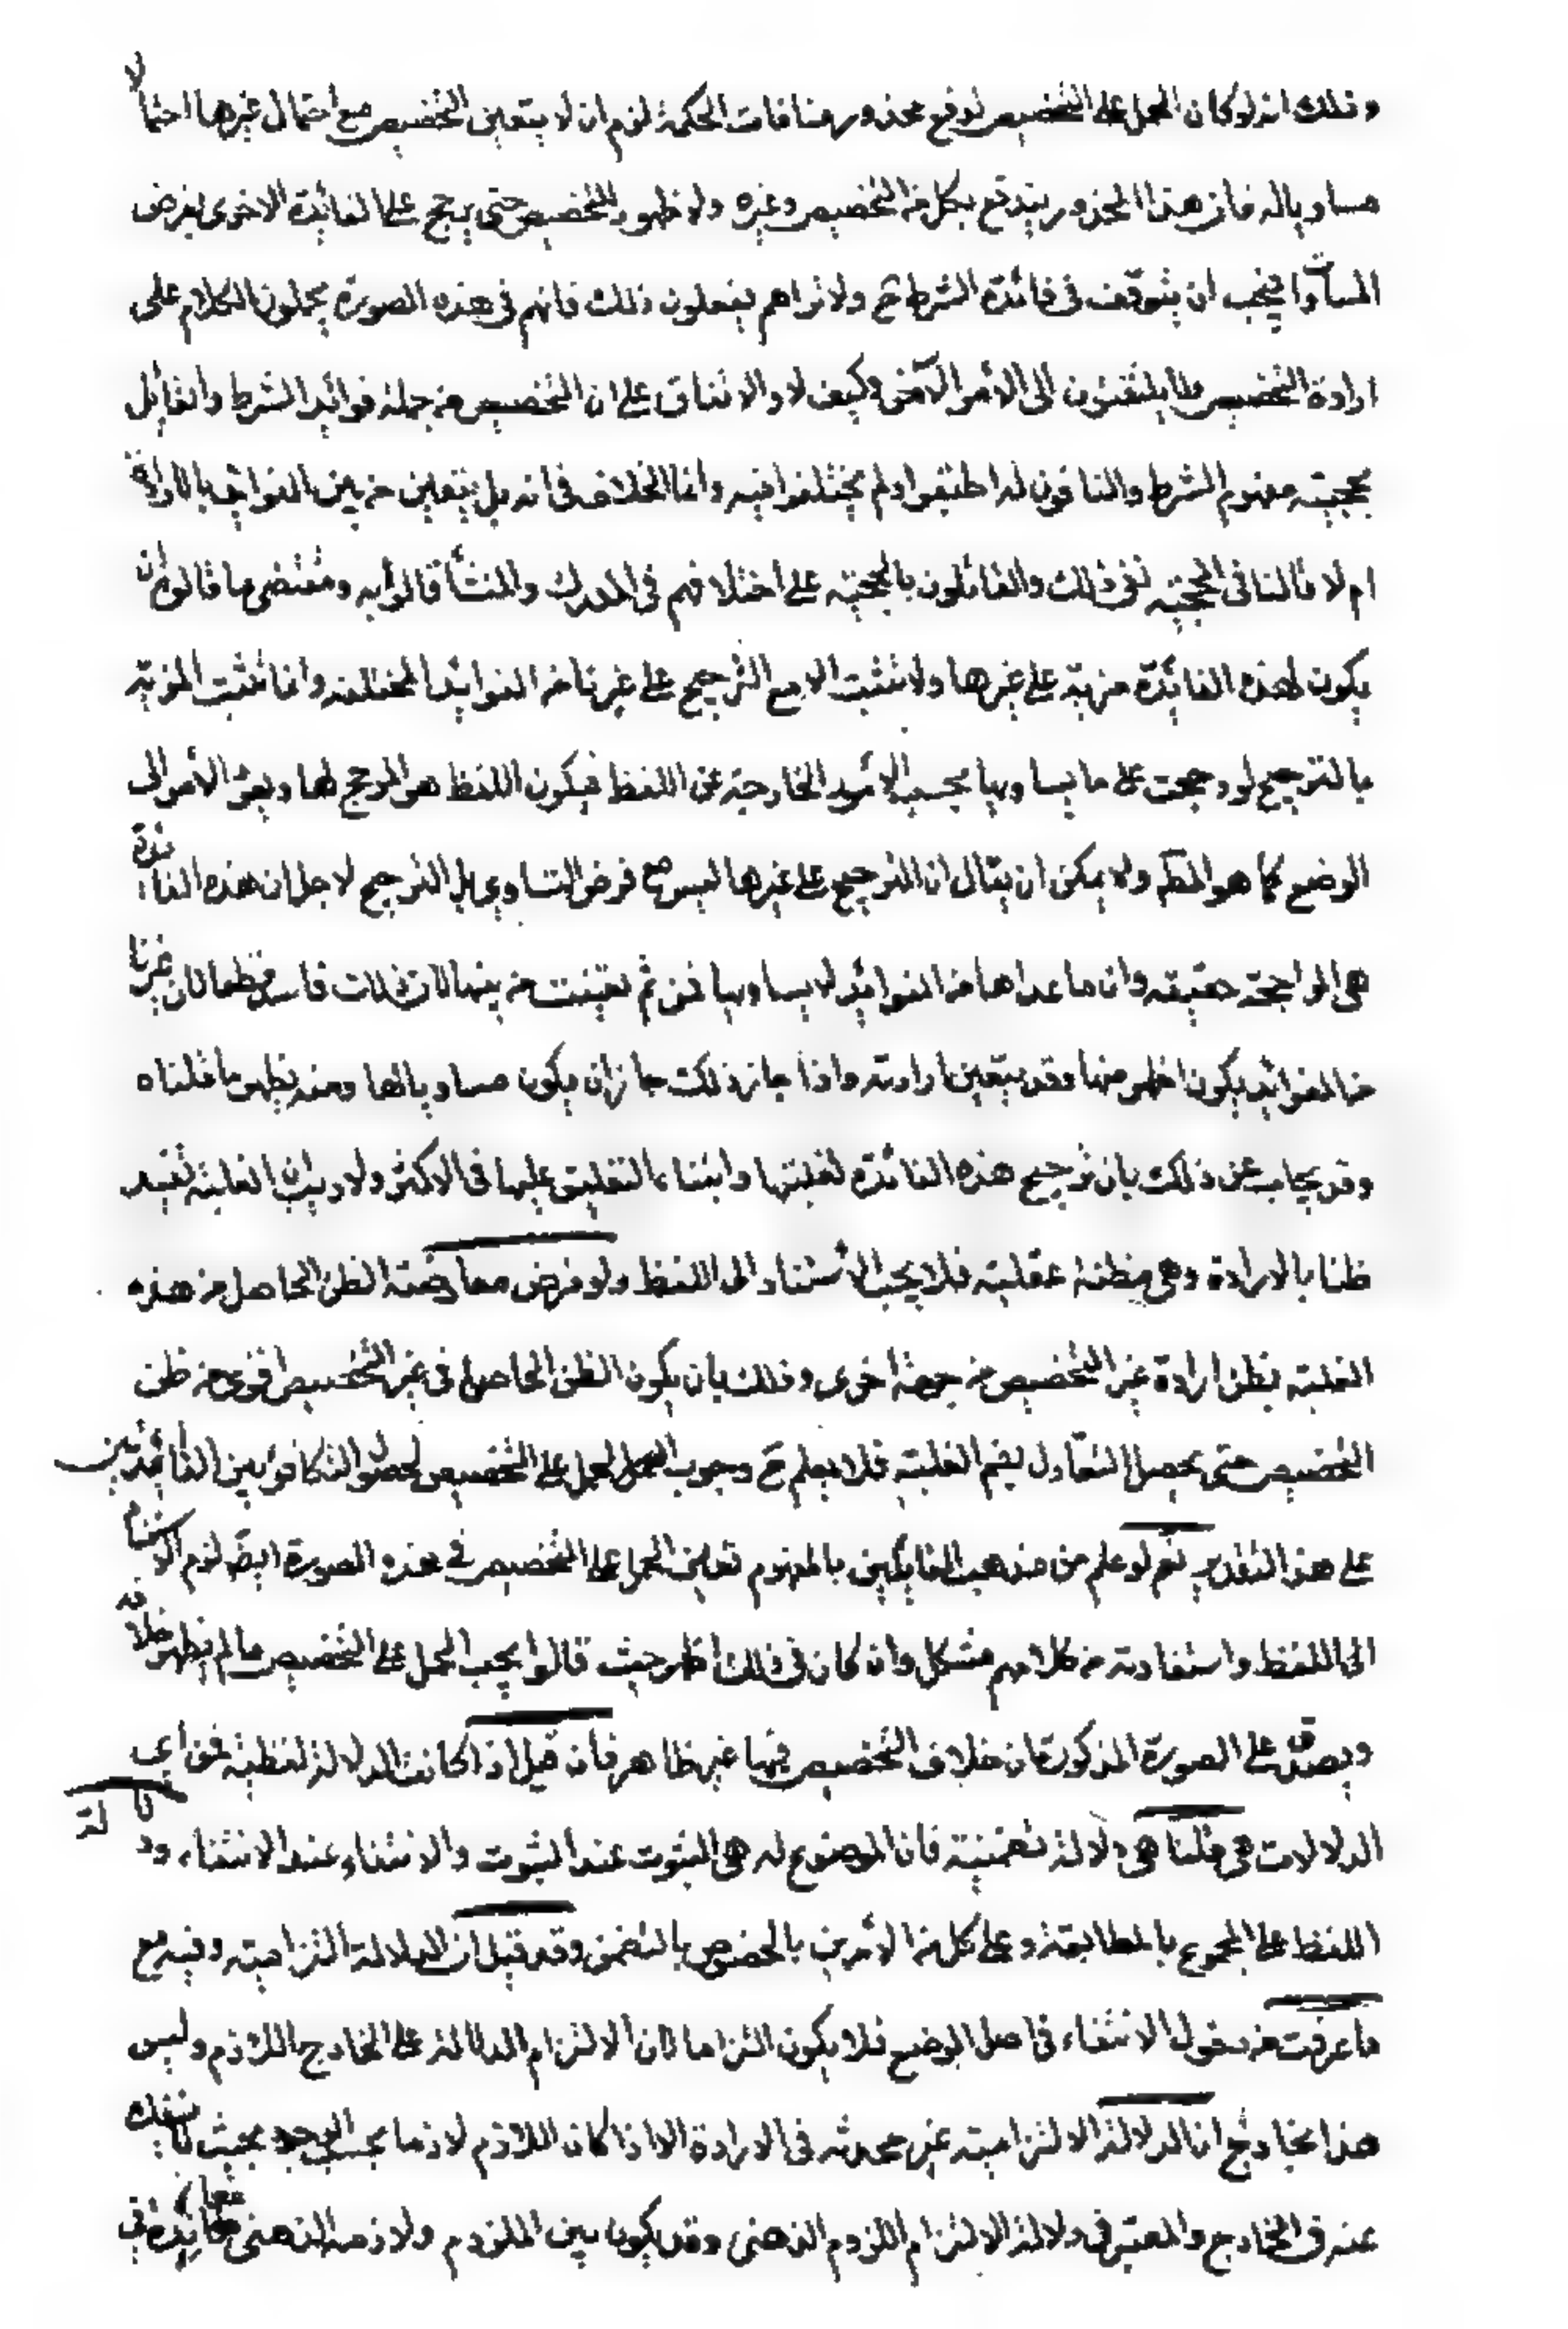 وذلك انه لو كان الحمل على التخصيص لدفع محذور منافات الحكمة لزم ان لا يتعين التخصيص مع احتمال غيرها احتمالا
مساويا له فان هذا المحذور يندفع بكل من التخصيص وغيره ولا ظهور للتخصيص حتى يرجح على الفائدة الاخرى بفرض
المساواة فيجب ان يتوقف فى فائدة الشرط ح ولا نراهم يفعلون ذلك فانهم فى هذه الصورة يحملون الكلام على
ارادة التخصيص ولا يلتفتون الى الأمر الآخر وكيف لا والاتفاق على ان التخصيص من جملة فوائد الشرط والقائل
بحجيته مفهوم الشرط والنافون له اطبقوا ولم يختلفوا فيه وانما الخلاف فى انه هل يتعين من بين الفوائد بالارادة
ام لا فالنافى للحجيه نفى ذلك والقائلون بالحجيه على اختلافهم فى المدرك والمنشأ قالوا به ومقتضى ما قالوه ان
يكون لهذه الفائدة مزية على غيرها ولا تثبت الا مع الترجيح على غيرها من الفوائد المختلفه وانما تثبت المزيه
بالترجيح لو رجحت على ما يساويها بحسب الأمور الخارجة عن اللفظ فيكون اللفظ هو المرجح لها ويعود الأمر الى
الوضع كما هو المطم ولا يمكن ان يقال ان الترجيح على غيرها ليس مع فرض التساوى بل الترجيح لاجل ان هذه الفائدة
هى الراجحة حقيقه وان ما عداها من الفوائد لا يساويها فمن ثم تعينت من بينها لان ذلك فاسد قطعا لان غيرها
من الفوائد يكون اظهر منها وقد يتعين ارادته واذا جاز ذلك جاز ان يكون مساويا لها ومنه يظهر ما قلناه
وقد يجاب عن ذلك بان ترجيح هذه الفائدة لغلبتها وابتناء التعليق عليها فى الاكثر ولا ريب ان الغلبة تفيد
ظنا بالارادة وهى مظنة عقلية فلا يجب الاستناد الى اللفظ ولو فرض معارضة الظن الحاصل من هذه
الغلبة بظن ارادة غير التخصيص من جهة اخرى وذلك بان يكون الظن الحاصل فى غير التخصيص اقوى من ظن
التخصيص حتى يحصل التعادل بضم الغلبة فلا يعلم ح وجوب الحمل على التخصيص لحصول التكافؤ بين الفائدتين
على هذا التقدير نعم لو علم من مذهب القائلين بالمفهوم تعين الحمل على التخصيص فى هذه الصورة ايض لزم الاستناد
الى اللفظ واستفادته من كلامهم مشكل وان كان فى ذلك اظهر حيث قالوا يجب الحمل على التخصيص ما لم يظهر خلافه
ويصدق على الصورة المذكورة ان خلاف التخصيص فيها غير ظاهر فان قيل اذا كانت الدلالة لفظية فمن اى
الدلالات هى قلنا هى دلالة تضمنية فان الموضوع له هى الثبوت عند الثبوت والانتفاء عند الانتفاء ودلالة
اللفظ على المجموع بالمطابقة وعلى كل من الأمرين بالخصوص بالتضمن وقد قيل ان الدلالة التزاميه وفيه مع
ما عرفت من دخول الانتفاء فى اصل الوضع فلا يكون التزاما لان الالتزام الدلالة على الخارج اللازم وليس
هذا بخارج ان الدلالة الالتزاميه غير محدثه فى الارادة الا اذا كان اللازم لازما بحسب الوجود بحيث لا ينفك
عنه فى الخارج والمعتبر فى دلالة الالتزام اللزوم الذهنى وقد يكون بين الملزوم ولازمه الذهنى معاندة فى